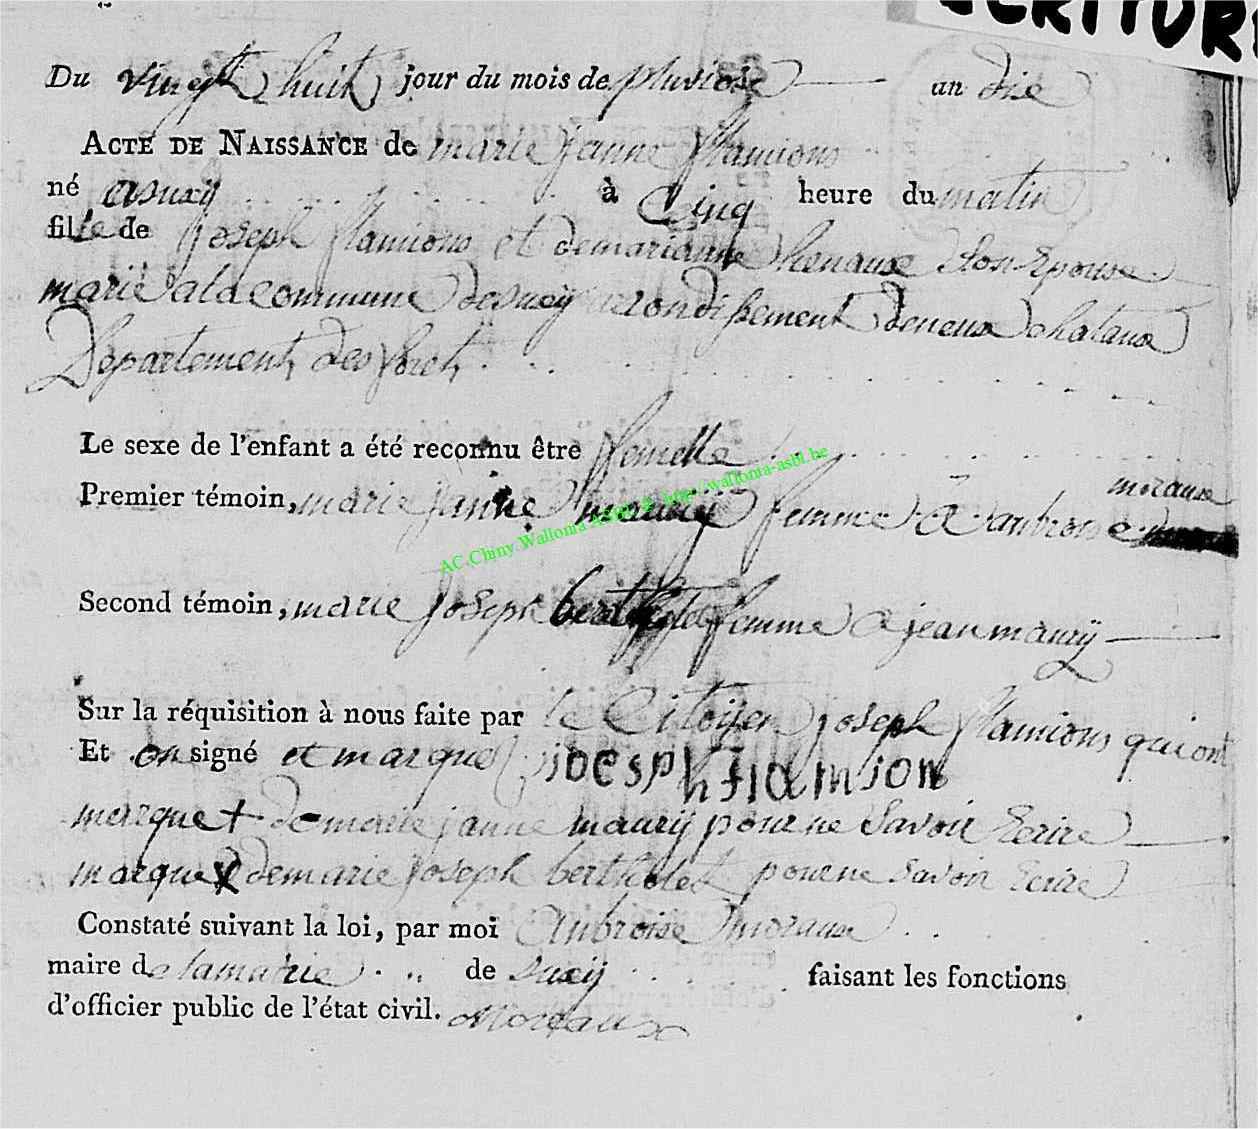 ECRITUR
Du vingt huit jour du mois de pluviose an dix
ACTE DE NAISSANCE de marie janne flamions
né a suxy à Cinq heure du matin
fille de joseph flamions et de marianne henaux son Epouse
marié a la commune de suxy arrondissement de neux chataux
Departement des foret
Le sexe de l'enfant a été reconnu être femelle
moraux
Premier témoin, marie janne maury femme a anbroise
Second témoin, marie joseph bertholet femme a jean maury
Sur la réquisition à nous faite par le Citoyen joseph flamions qui ont
Et on signé et marque joesph flamion
marque + de marie janne maury pour ne savoir Ecrire
marque x de marie joseph bertholet pour ne savoir Ecrire
Constaté suivant la loi, par moi anbroise moraux
maire de la mairie de suxy faisant les fonctions
d'officier public de l'état civil. Moraux
AC.Chiny Wallonia http://wallonia-asbl.be